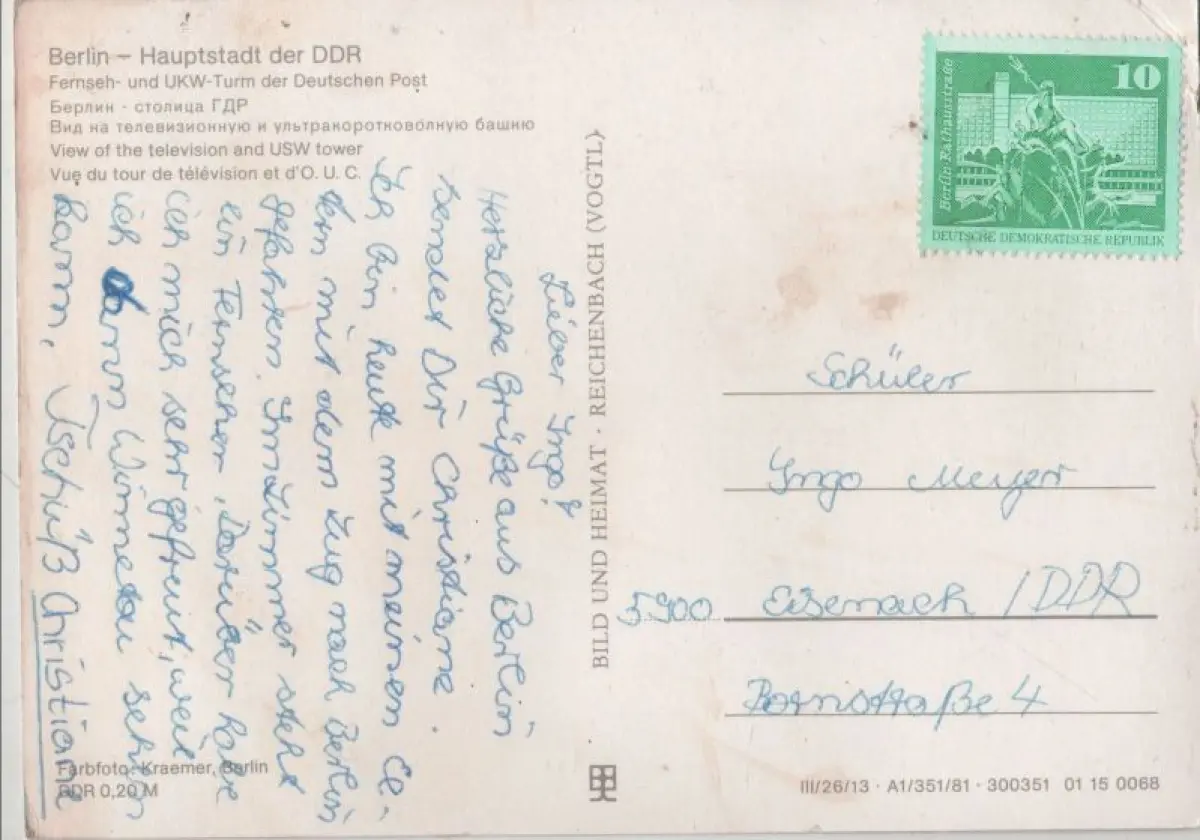 Berlin – Hauptstadt der DDR
Fernseh- und UKW-Turm der Deutschen Post
Берлин · столица ГДР
Вид на телевизионную и ультракоротковолную башню
View of the television and USW tower
Vue du tour de télévision et d'O. U. C.
Lieber Ingo!
Herzliche Grüße aus Berlin
sendet Dir Christiane.
Ich bin heute mit meinen El-
tern mit dem Zug nach Berlin
gefahren. Im Zimmer steht
ein Fernseher. Darüber habe
ich mich sehr gefreut, weil
ich dann Winnetou sehen
kann. Tschüß Christiane
Farbfoto: Kraemer, Berlin
DDR 0,20 M
BILD UND HEIMAT · REICHENBACH (VOGTL)
10
Berlin-Rathausstraße
DEUTSCHE DEMOKRATISCHE REPUBLIK
Schüler
Ingo Meyer
5900 Eisenach / DDR
Bornstraße 4
III/26/13 · A1/351/81 · 300351 01 15 0068